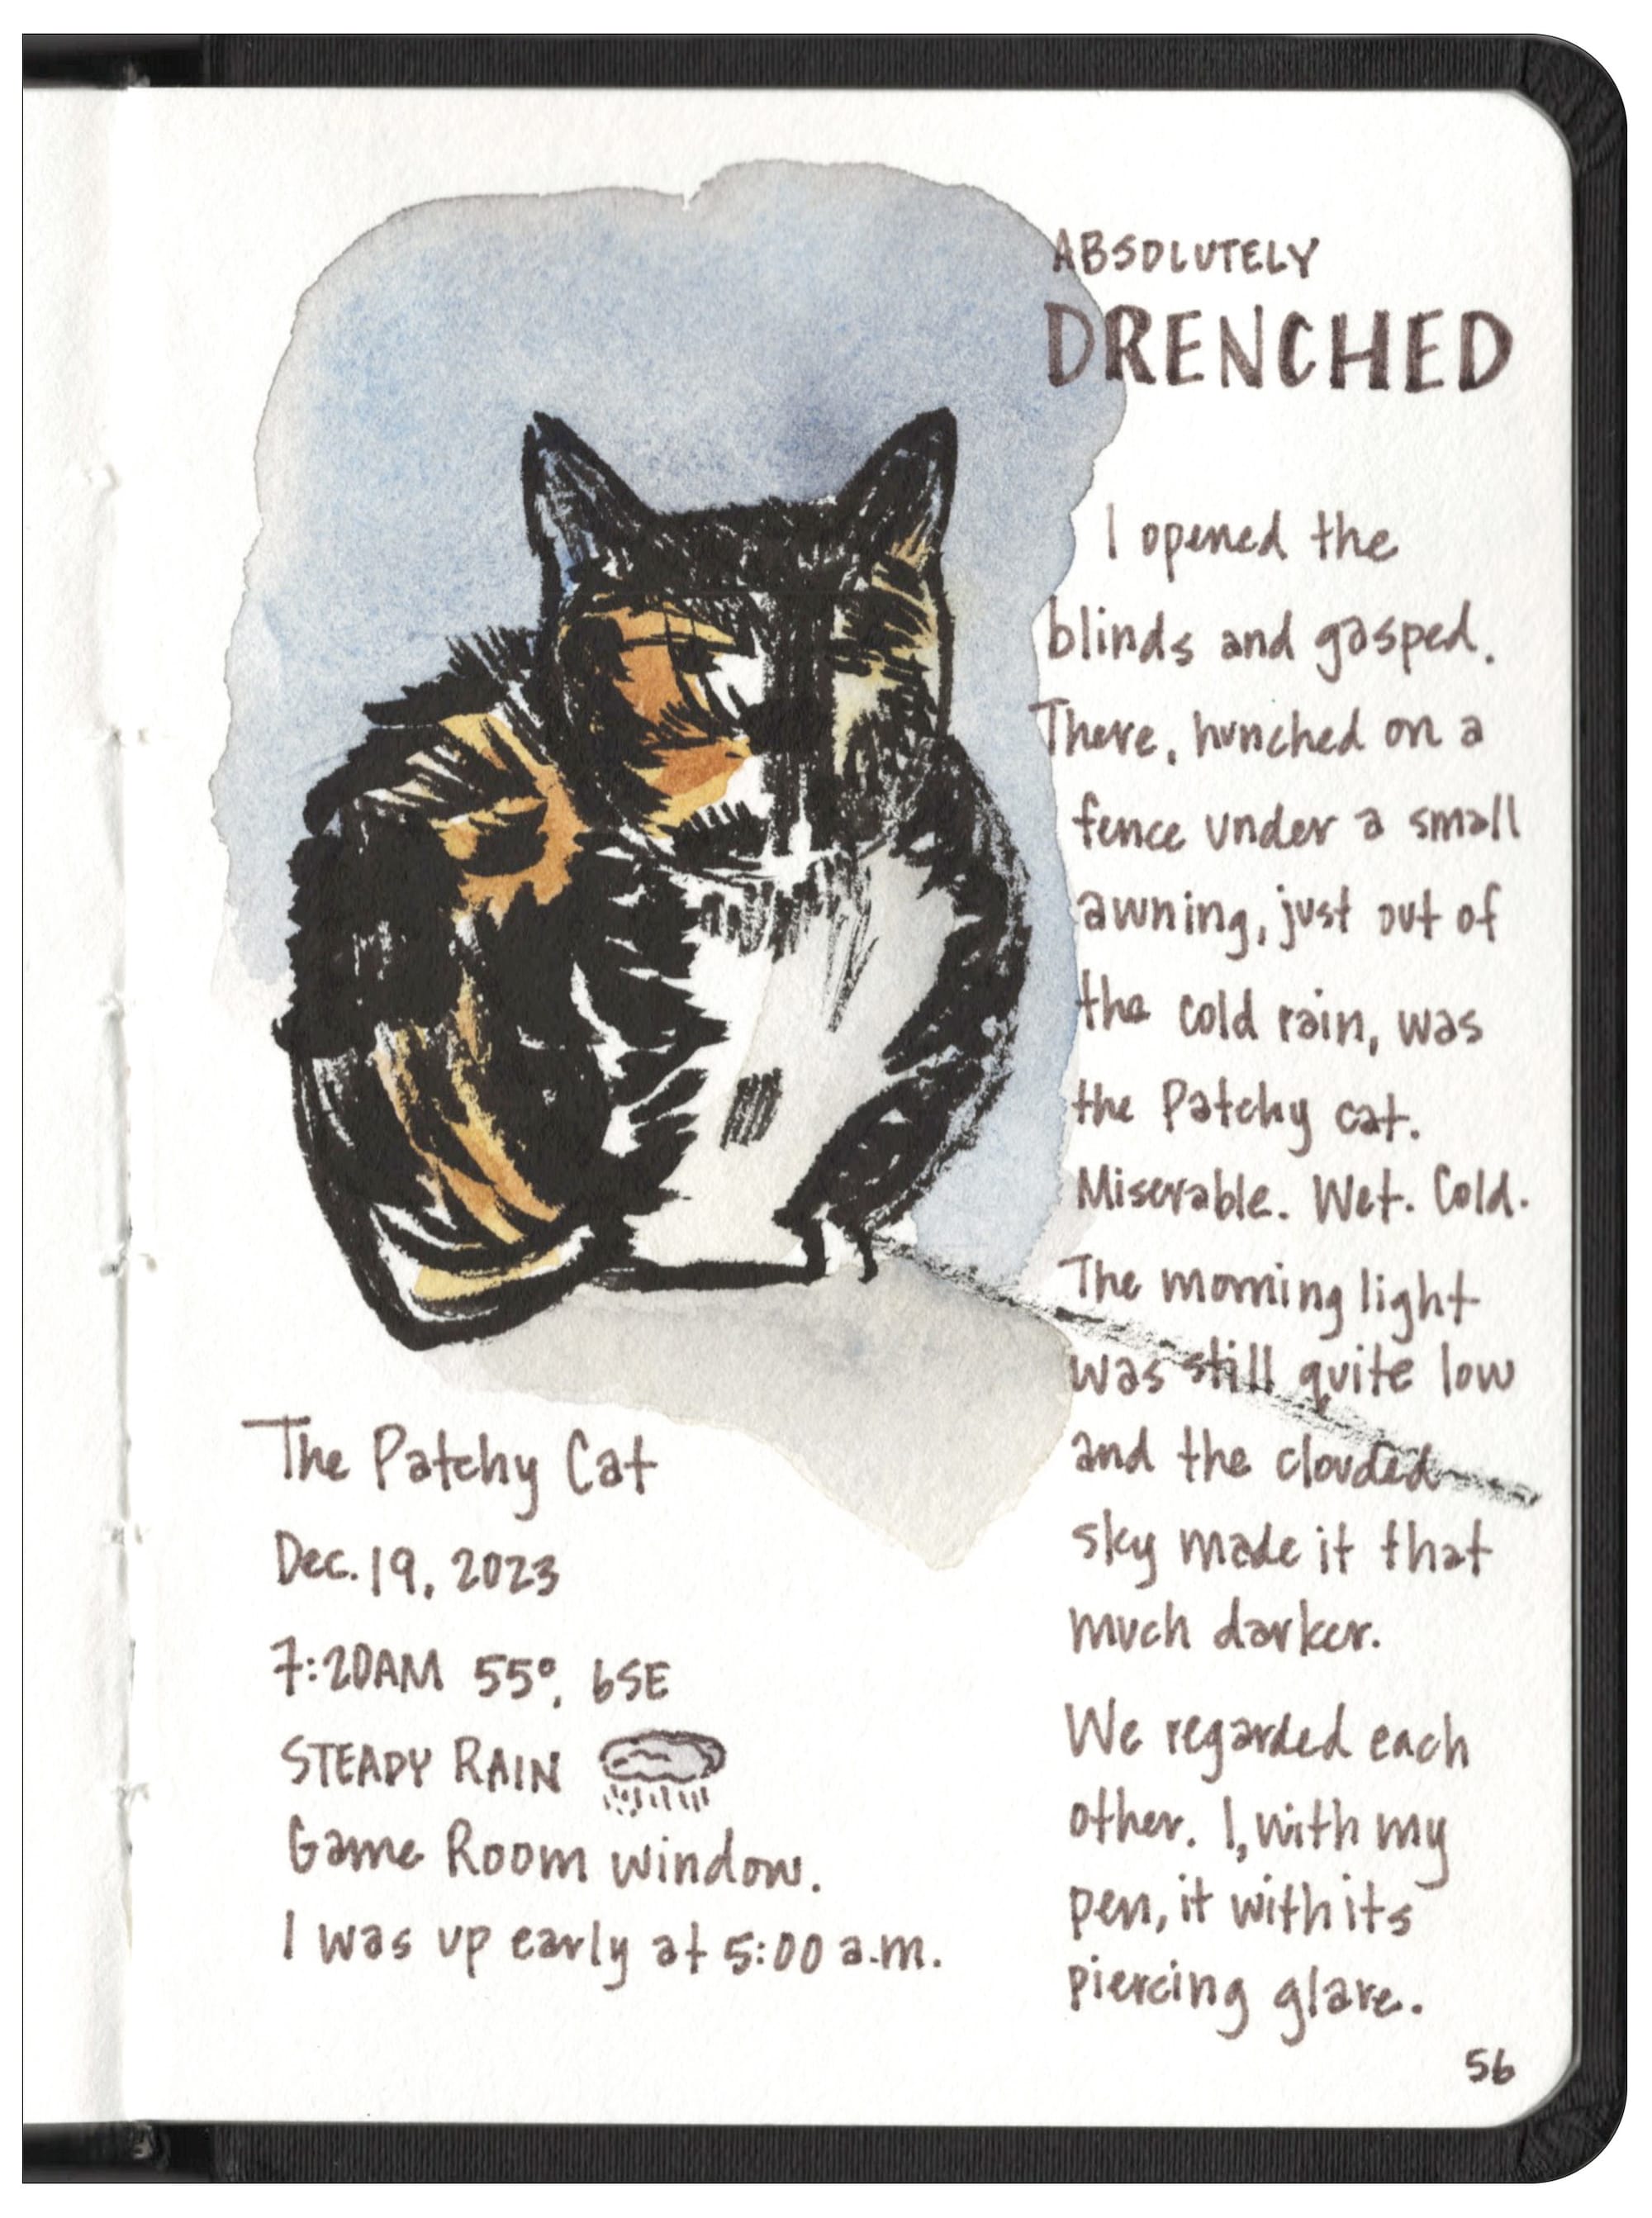 ABSOLUTELY
DRENCHED
I opened the
blinds and gasped.
There, hunched on a
fence under a small
awning, just out of
the cold rain, was
the Patchy cat.
Miserable. Wet. Cold.
The morning light
was still quite low
and the clouded
sky made it that
much darker.
We regarded each
other. I, with my
pen, it with its
piercing glare.
The Patchy Cat
Dec. 19, 2023
7:20AM 55°, 6SE
STEADY RAIN
Game Room window.
I was up early at 5:00 a.m.
56